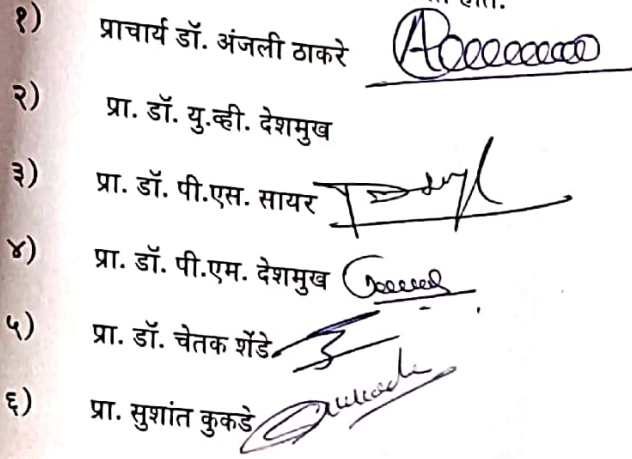 होते.
१) प्राचार्य डॉ. अंजली ठाकरे
२) प्रा. डॉ. यु.व्ही. देशमुख
३) प्रा. डॉ. पी.एस. सायर
४) प्रा. डॉ. पी.एम. देशमुख
५) प्रा. डॉ. चेतक शेंडे
६) प्रा. सुशांत कुकडे